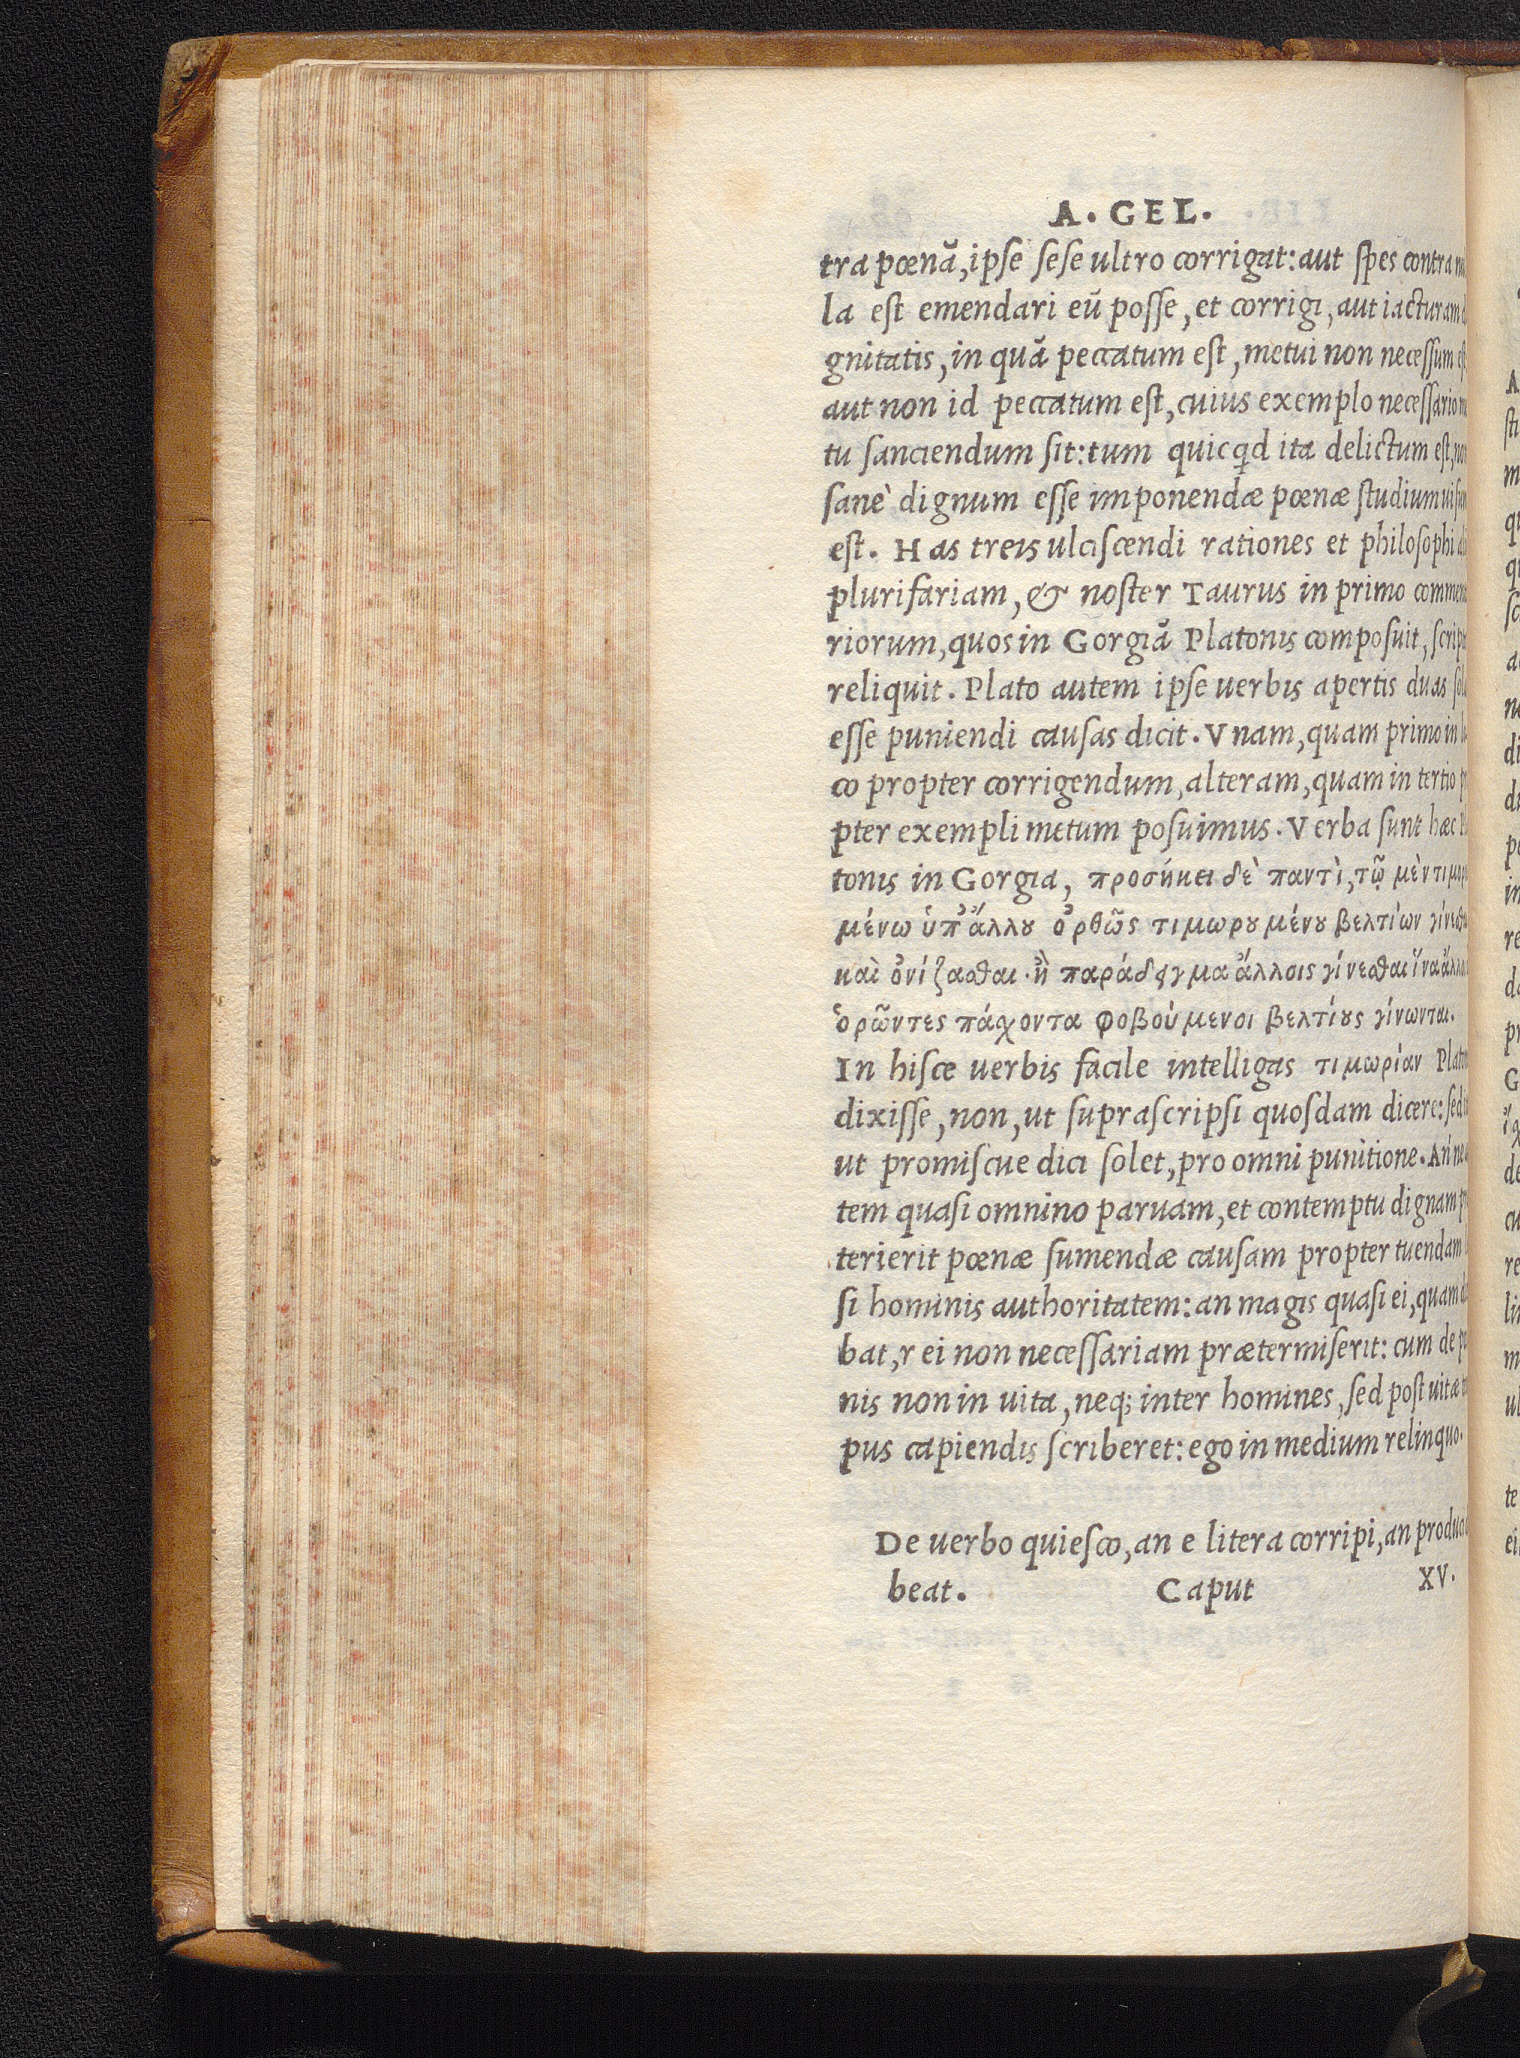 A. GEL.
tra pœnã, ipse sese ultro corrigat: aut spes contra
la est emendari eũ posse, et corrigi, aut iacturam
gnitatis, in quã peccatum est, metui non necessum
aut non id peccatum est, cuius exemplo necessario
tu sanciendum sit: tum quicqd ita delictum est,
sanè dignum esse imponendæ pœnæ studium
est. Has treis ulciscendi rationes et philosophi
plurifariam, & noster Taurus in primo
riorum, quos in Gorgiã Platonis composuit,
reliquit. Plato autem ipse uerbis apertis duas
esse puniendi causas dicit. Vnam, quam primo in
co propter corrigendum, alteram, quam in tertio
pter exempli metum posuimus. Verba sunt hæc
tonis in Gorgia, προσήκει δὲ παντὶ, τῷ μὲν
μένω ὑπ᾽ ἄλλου ὀρθῶς τιμωρουμένου βελτίων
καὶ ὀνίζασθαι. ἢ παράδειγμα ἄλλοις γίνεσθαι ἵνα
ὁρῶντες πάσχοντα φοβούμενοι βελτίους γίνωνται.
In hisce uerbis facile intelligas τιμωρίαν
dixisse, non, ut suprascripsi quosdam dicere:
ut promiscue dici solet, pro omni punitione.
tem quasi omnino paruam, et contemptu dignam
terierit pœnæ sumendæ causam propter tuendam
si hominis authoritatem: an magis quasi ei, quam
bat, rei non necessariam prætermiserit: cum de
nis non in uita, neq; inter homines, sed post uitæ
pus capiendis scriberet: ego in medium relinquo.
De uerbo quiesco, an e litera corripi, an
beat. Caput XV.